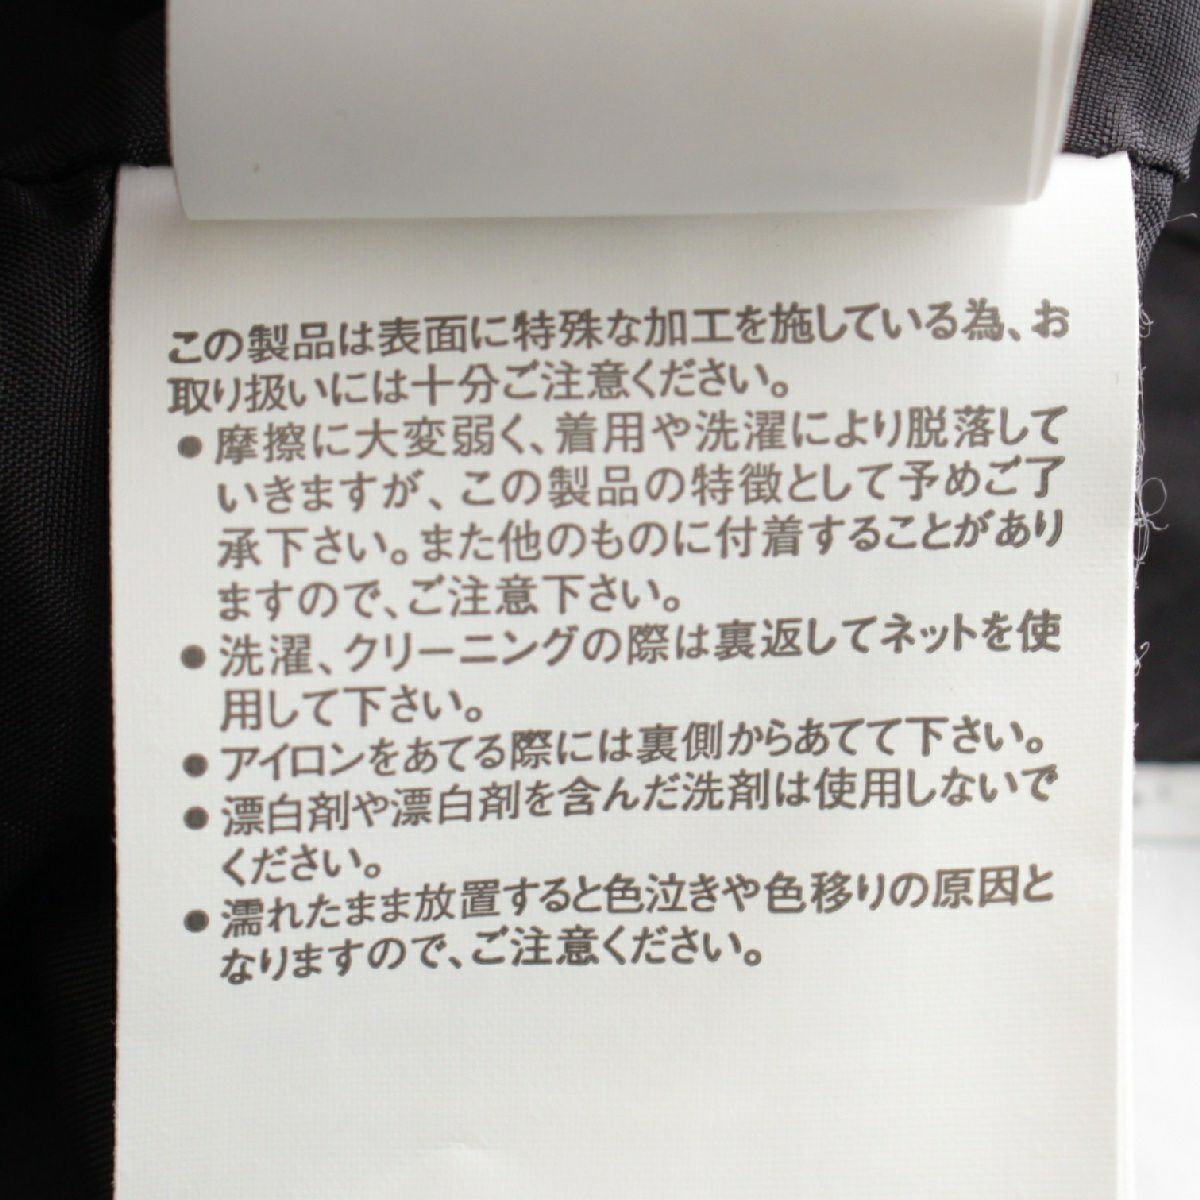 この製品は表面に特殊な加工を施している為、お
取り扱いには十分ご注意ください。
●摩擦に大変弱く、着用や洗濯により脱落して
いきますが、この製品の特徴として予めご了
承下さい。また他のものに付着することがあり
ますので、ご注意下さい。
●洗濯、クリーニングの際は裏返してネットを使
用して下さい。
●アイロンをあてる際には裏側からあてて下さい。
●漂白剤や漂白剤を含んだ洗剤は使用しないで
ください。
●濡れたまま放置すると色泣きや色移りの原因と
なりますので、ご注意ください。